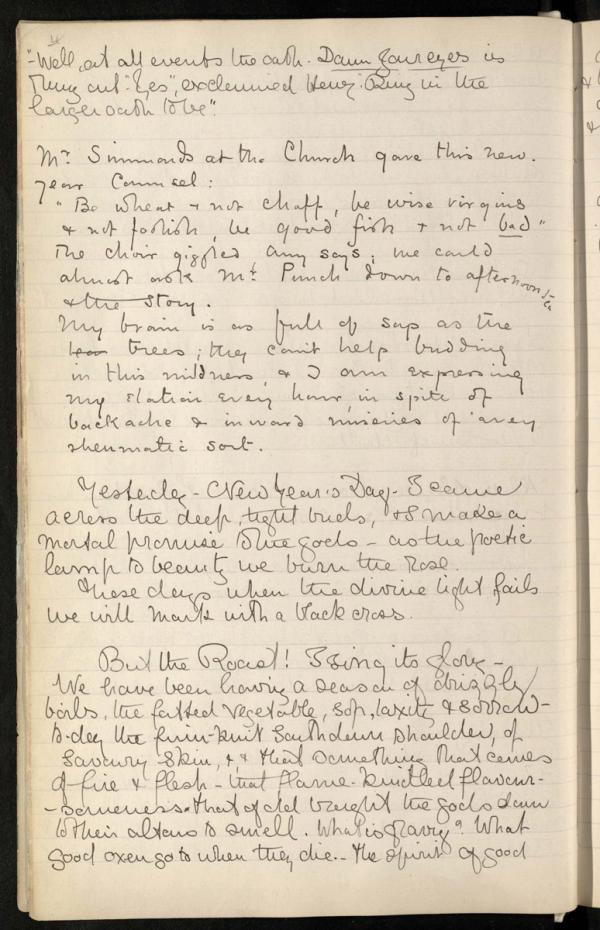 "Well, at all events the oath. Damn your eyes is
flung out "Yes", exclaimed Henry. Ring in the
larger oath to be".
Mr. Simmonds at the Church gave this new.
year Counsel:
"Be wheat & not chaff, be wise virgins
& not foolish, be good fish & not bad"
The choir giggled, Amy says; we could
almost ask Mr. Punch down to afternoon tea
& the story.
My brain is as full of sap as the
trees; they can't help budding
in this mildness, & I am expressing
my elation every hour, in spite of
backache & inward miseries of a very
rheumatic sort.
Yesterday - New Year's Day - I came
across the deep, tight buds, & I make a
mortal promise to the gods - as the poetic
lamp to beauty we burn the rose.
These days when the divine light fails
we will mark with a black cross.
But the Roast! I sing its glory -
We have been having a season of drizzly
boils, the fatted vegetable, sop, laxity & sorrow -
to-day the firm-knit Southdown shoulder, of
savoury skin, & & that something that comes
of fire & flesh - that flame-kindled flavour-
-someness that of old brought the gods down
to their altars to smell. What is gravy? What
good oxen go to when they die. - The spirit of good